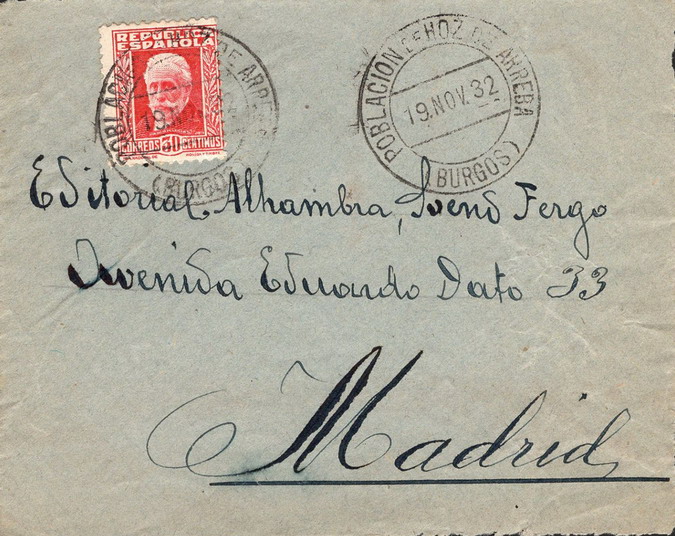 REPÚBLICA
ESPAÑOLA
CORREOS 30 CENTIMOS
POBLACION DE HOZ DE ARREBA
19.NOV.32
(BURGOS)
POBLACION DE HOZ DE ARREBA
19.NOV.32
(BURGOS)
Editorial Alhambra, Svend Fergo
Avenida Eduardo Dato 33
Madrid